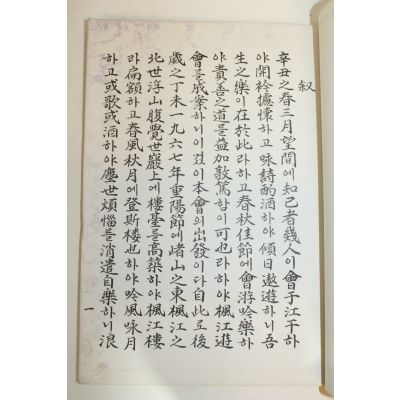 叙
辛丑之春三月望間에知己者幾人이會于江干하
야開衿攄懷하고咏詩酌酒하야傾日遨遊하니吾
生之樂이在於此라하고春秋佳節에會游吟樂하
야責善之道를益加敦篤함이可也라하야楓江遊
會를成案하니이것이本會의出發이다自此로後
歲之丁未一九六七年重陽節에崵山之東楓江之
北世浮山腹覺世巖上에樓臺를高築하야楓江樓
라扁額하고春風秋月에登斯樓也하야吟風咏月
하고或歌或酒하야塵世煩惱를消遣自樂하니浪
一